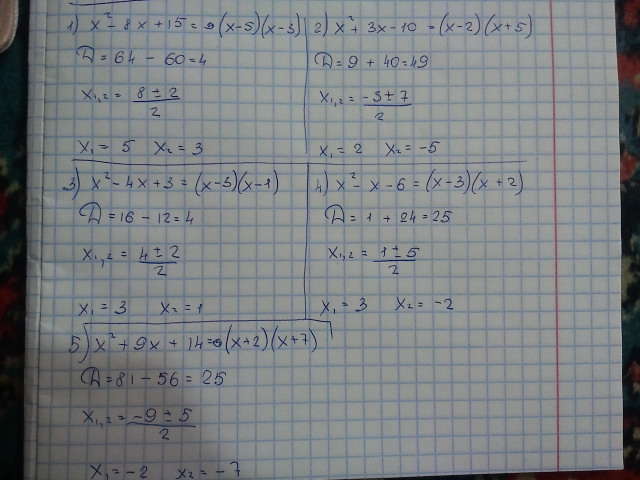 1) x² - 8x + 15 = (x-5)(x-3)
D = 64 - 60 = 4
x₁,₂ = (8 ± 2)/2
x₁ = 5 x₂ = 3
2) x² + 3x - 10 = (x-2)(x+5)
D = 9 + 40 = 49
x₁,₂ = (-3 ± 7)/2
x₁ = 2 x₂ = -5
3) x² - 4x + 3 = (x-3)(x-1)
D = 16 - 12 = 4
x₁,₂ = (4 ± 2)/2
x₁ = 3 x₂ = 1
4) x² - x - 6 = (x-3)(x+2)
D = 1 + 24 = 25
x₁,₂ = (1 ± 5)/2
x₁ = 3 x₂ = -2
5) x² + 9x + 14 = (x+2)(x+7)
D = 81 - 56 = 25
x₁,₂ = (-9 ± 5)/2
x₁ = -2 x₂ = -7